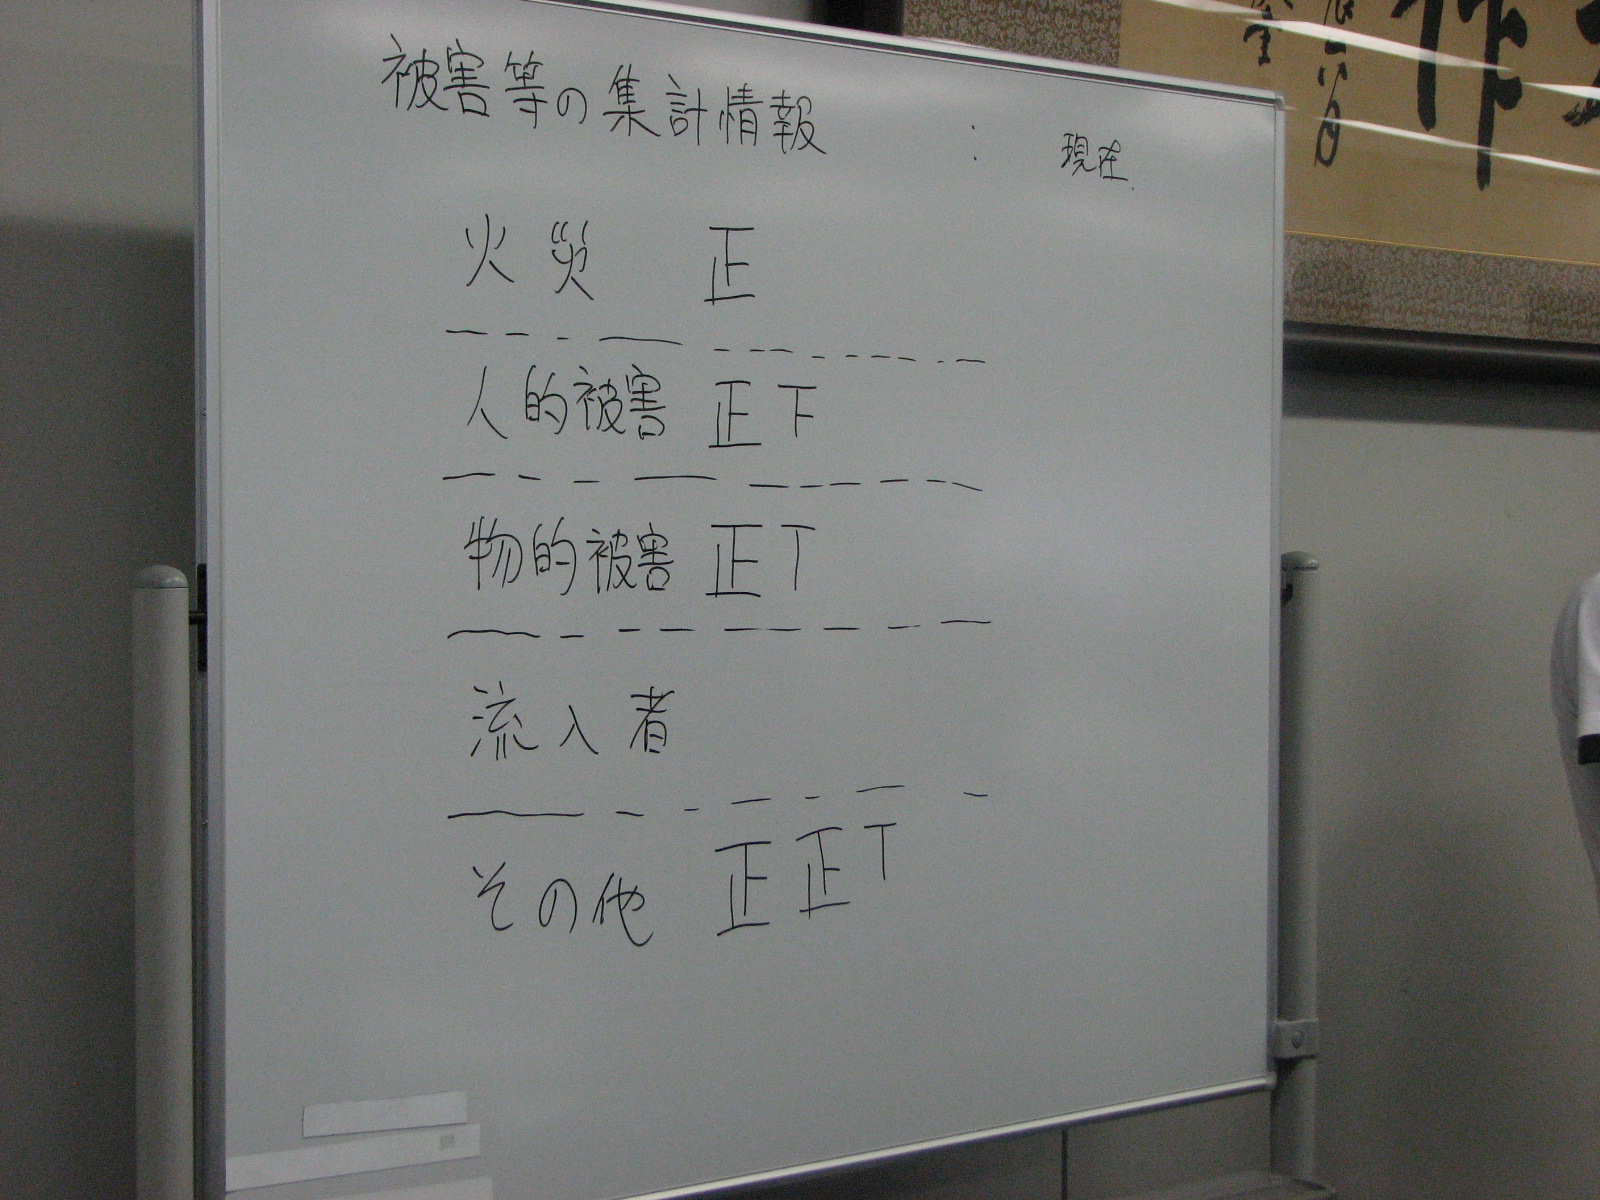 被害等の集計情報 : 現在
火災 正
人的被害 正下
物的被害 正丅
流入者
その他 正正丅